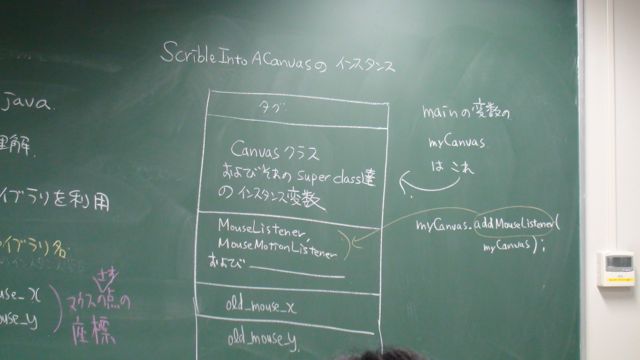 ScribleIntoACanvasの インスタンス
java.
理解.
イブラリを利用
イブラリ名
use_x
use_y
さす
マウスの点の
座標
タグ
Canvasクラス
およびそれのsuperclass達
の インスタンス変数
MouseListener,
MouseMotionListener
および
old_mouse_x
old_mouse_y
mainの変数の
myCanvas
は これ
myCanvas.addMouseListener(
myCanvas);